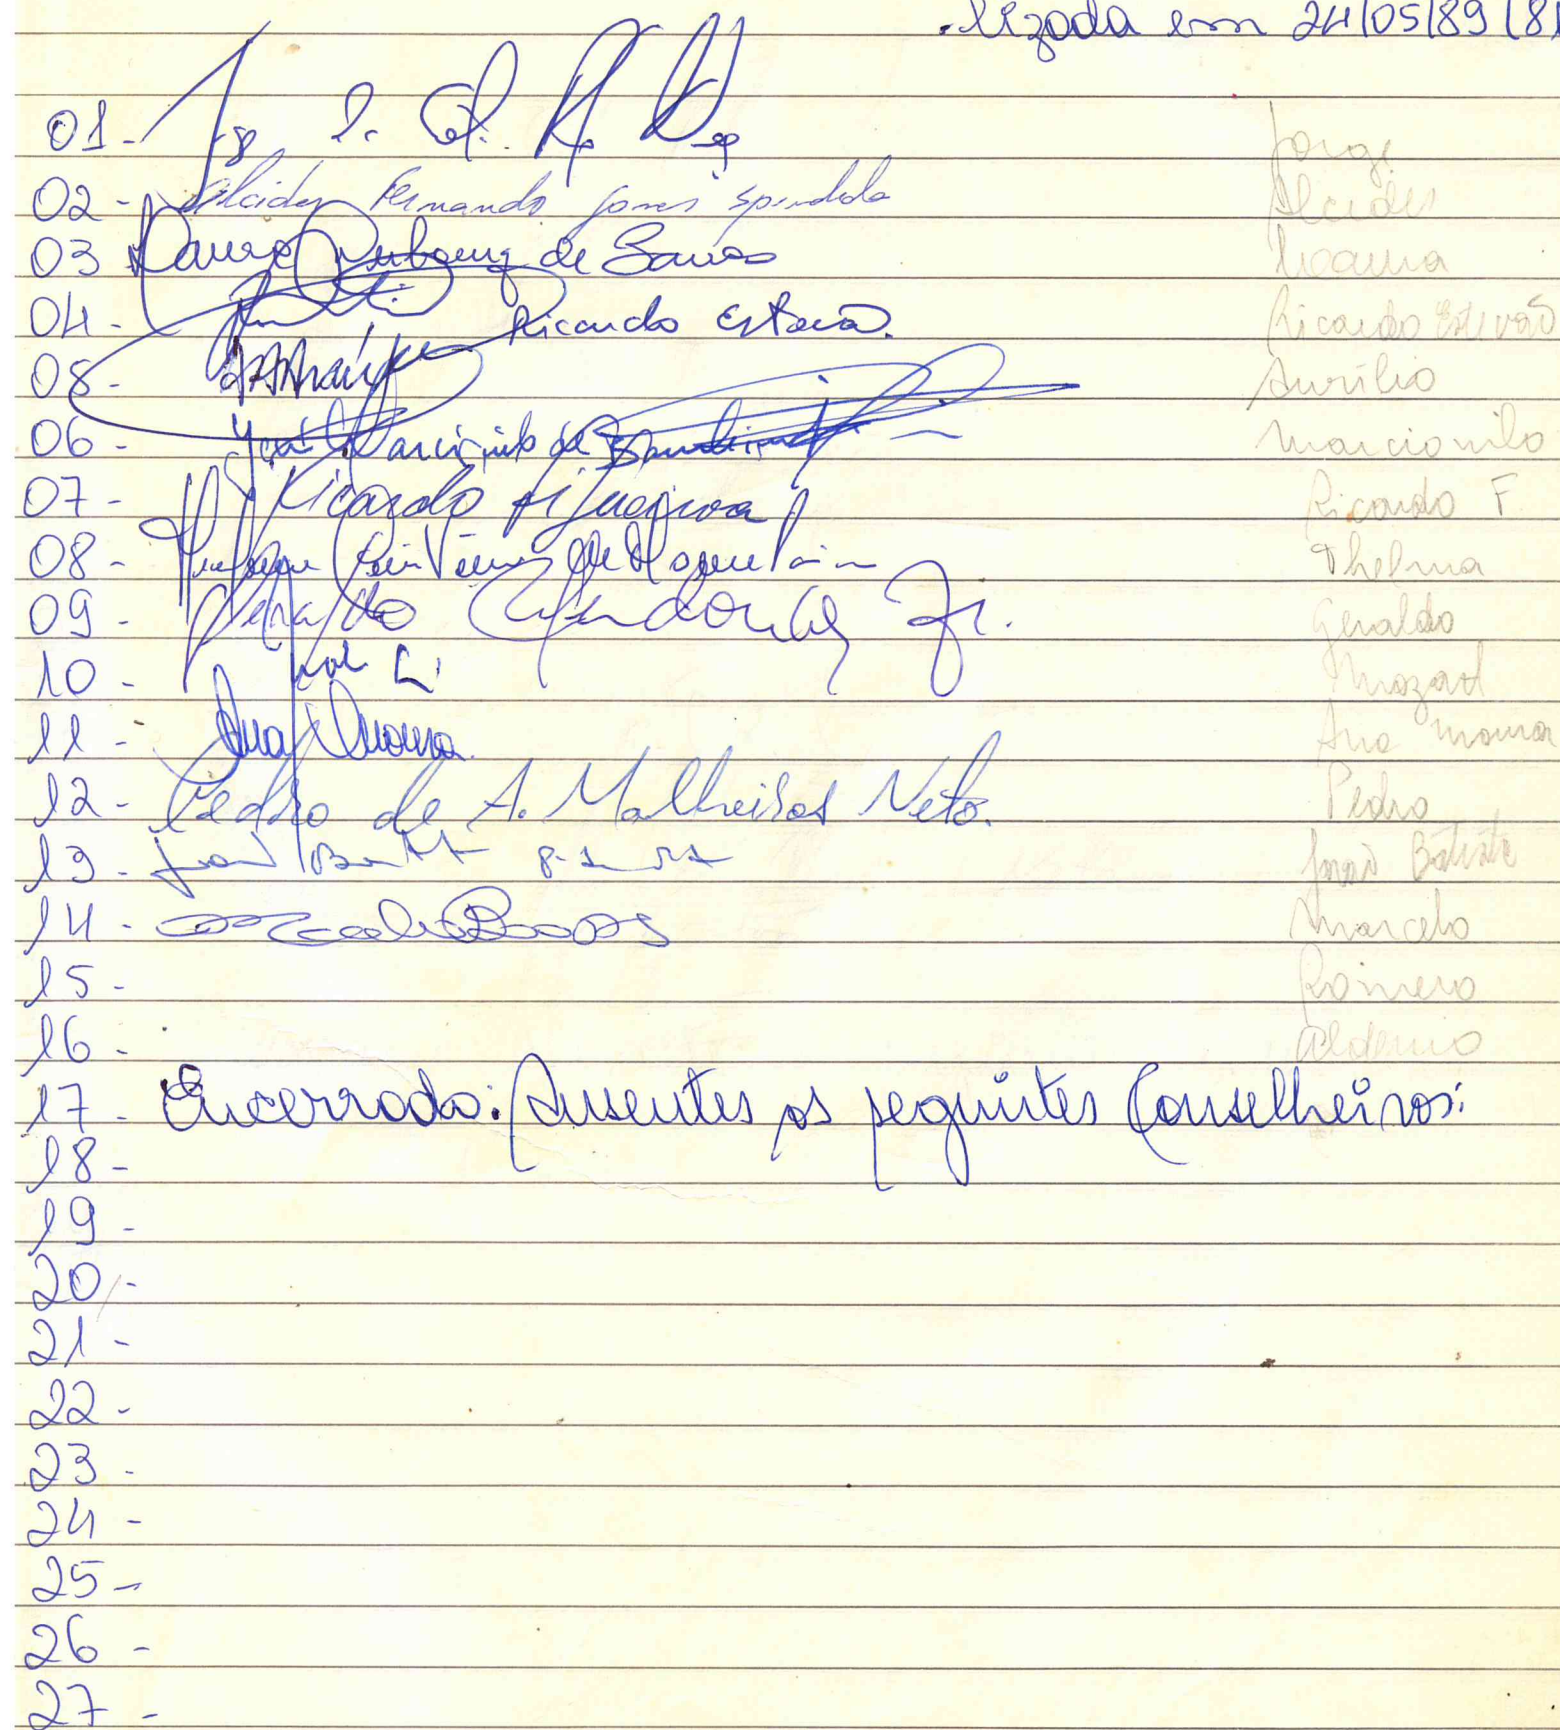 lizada em 24/05/89 (8
01 - Jorge
02 - Alcides Fernando Gomes Spindola Alcides
03 de Barros
04 - Ricardo Estevão. Ricardo Estevão
05 - Aurílio
06 - José Marcionilo de Marcionilo
07 - Ricardo Figueiroa Ricardo F.
08 - Thelma
09 - Geraldo Mendonça Jr. Geraldo
10 - Mozart
11 - Ana Moura. Ana Moura
12 - Pedro de A. Malheiros Neto. Pedro
13 - João João Batista
14 - Marcelo
15 - Romero
16 - Aldemio
17 - Encerrado: Ausentes os seguintes Conselheiros:
18 -
19 -
20 -
21 -
22 -
23 -
24 -
25 -
26 -
27 -